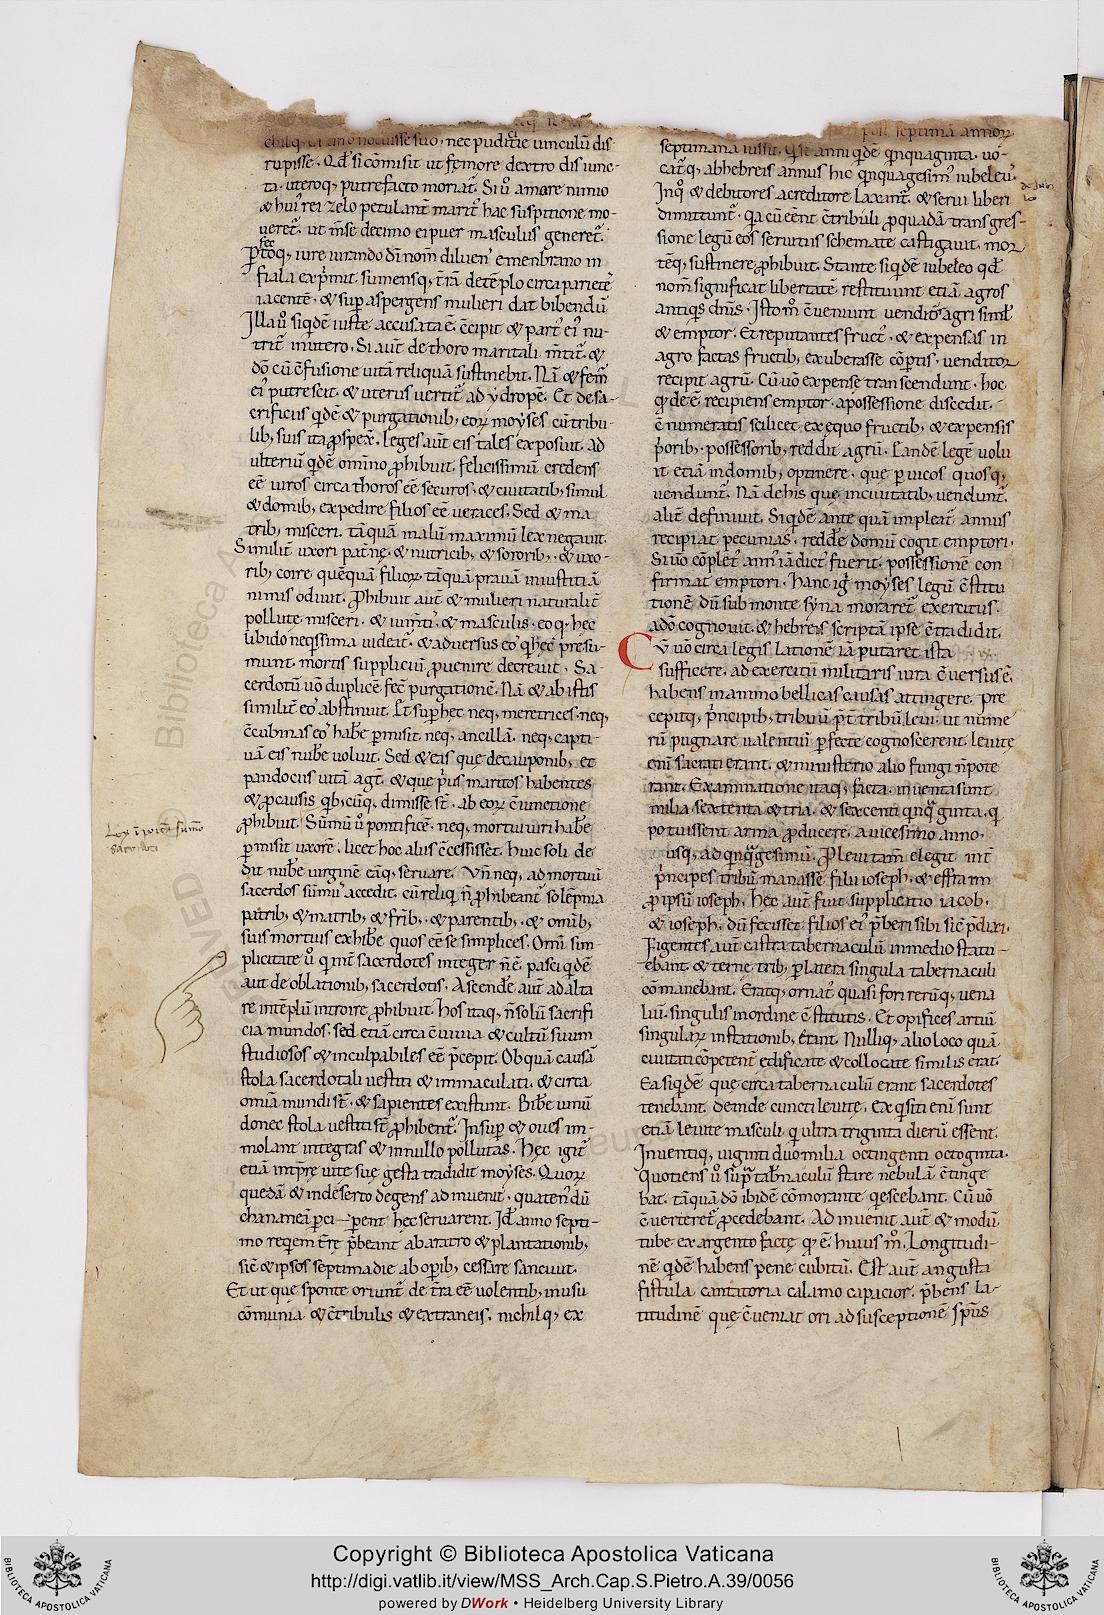 nec pudicitię vinculū dis
rupisse. Qđ si cōmisit ut femore dextro dis iunc
ta. uteroq; putrefacto moriat̄. Si ū amore nimio
& hui' rei zelo petulant̄ marit' hac suspitione mo
ueret̄. ut m̄se decimo ei puer masculus generet̄.
fiala exp̄mit. sumensq; t̄rā de tēplo circa pariete
iacentē. & sup aspergens mulieri dat bibendū
Illa ū siqdē iuste accusata ē. c̄cipit & part' ei' nu
trit' in utero. Si aut̄ de thoro maritali m̄tit̄. &
dō cū c̄fusione uitā reliquā sustinebit. Nā & fem̄
ei' putrescit. & uterus uertit̄ ad ydropē. Et de sa
crificiis qdē & purgationib; eoꝝ moyses cū tribu
lib; suis ita ꝓspex̄. leges aut̄ eis tales exposuit. Ad
ulteriū qdē omino ꝓhibuit. felicissimū credens
eē uiros circa thoros eē securos. & ciuitatib; simul
& domib; expedire filios eē ueraces. Sed & ma
trib; misceri. tāquā malū maximū lex negauit.
Similit̄ uxori pat̄nę. & nutricib; & sororib;. & uxo
rib; coire quēquā filioꝝ. tāquā prauā iniustitiā
nimis odiuit. ꝓhibuit aut̄ & mulieri naturalit̄
pollute misceri. & ium̄ti. & masculis. eo q hęc
libido neqssima uideat̄. & aduersus eo' q hęc presu
munt. mortis suppliciū ꝓuenire decreuit. Sa
cerdotū uō duplicē fec̄ purgationē. Nā & ab istis
similit̄ eo' abstinuit. Et sup hęc neq; meretrices. neq;
c̄cubinas eo' hab̄e ꝑmisit. neq; ancillā. neq; capti
uā eis nub̄e uoluit. Sed & eas que de cauponib; et
pandociis uitā agt̄. & que p̄us maritos habentes
& ꝓ causis qb; cūq; dimisse st̄. ab eoꝝ c̄iunctione
ꝓhibuit. Sūmū ū pontificē. neq; mortui uiri hab̄e
ꝑmisit uxorē. licet hoc aliis c̄cessisset. huic soli de
dit nub̄e uirginē eāq; seruare. Vn̄ neq; ad mortuū
sacerdos sūmu' accedit. cū reliq n̄ ꝓhibeant̄ solēpnia
patrib; & matrib; & fr̄ib;. & parentib;. & omib;
suis mortuis exhib̄e quos eē se simplices. Om̄i sim
plicitate ū q int̄ sacerdotes integer n̄ ē. pasci qdē
aut de oblationib; sacerdotis. Ascende aut̄ ad alta
re in tēplū introire ꝓhibuit. Hos itaq; n̄ solū sacrifi
cia mundos. sed etiā circa c̄uiuia & cultū suum
studiosos & inculpabiles eē p̄cepit. Ob quā causā
stola sacerdotali uestiti & immaculati. & circa
omia mundi st̄. & sapientes existunt. Bib̄e uinū
donec stola uestiti st̄ ꝓhibent̄. Insup & oues im
molant integras & in nullo pollutas. Hęc igit̄
etiā int̄p̄re uite suę gesta tradidit moyses. Quoꝝ
quedā & in deserto degens ad inuenit. quaten' dū
chananeā ꝑciperent hęc seruarent. Id' anno septi
mo reqem t̄rę p̄beant ab aratro & plantationib;
sic̄ & ipsos septima die ab opib; cessare sanciuit.
Et ut que sponte oriunt̄ de t̄ra eē uolentib; in usu
cōmunia & c̄tribulis & extraneis. nichilq; ex
post septimā annoꝝ
septimana iussit. Qsi anni qdē qnquaginta. uo
cat̄q; ab hebreis annus hic qnquagesim' iubeleu'.
Inq' & debitores a creditore laxant̄. & serui liberi
dimittunt̄. Qa cū eēnt c̄tribuli ꝓ quadā transgres
sione legū eos seruitus schemate castigauit. mor
tēq; sustinere ꝓhibuit. Stante siqdē iubeleo qđ
nom̄ significat libertatē. restituunt etiā agros
antiqs dn̄is. Isto m̄ c̄ueniunt uenditor agri simł
& emptor. Et reputantes fruct'. & expensas in
agro factas fructib; exuberasse cōptis. uenditor
recipit agrū. Cū uō expense transcendunt. hoc
qđ deē recipiens emptor. a possessione discedit.
c̄numeratis scilicet ex equo fructib; & expensis
p̄orib; possessorib; reddit agrū. Eandē legē uolu
it etiā in domib; optinere. que ꝑ uicos quosq;
uendunt̄. Nā de his quę in ciuitatib; uendunt̄.
alit̄ definiuit. Siqdē ante quā impleat̄ annus
recipiat pecunias. redd̄e domū cogit emptori.
Si uō cōplet' ann' iā dict' fuerit. possessionē con
firmat emptori. Hanc ig' moyses legū c̄stitu
tionē dū sub monte syna moraret̄ exercitus.
a dō cognouit. & hebreis scriptā ipse c̄tradidit.
Cū uō circa legis lationē iā putaret ista
sufficere. ad exercitū militaris iura c̄uersus ē.
habens in animo bellicas causas attingere. pre
cepitq; p̄ncipib; tribuū p̄t̄ tribū leui. ut nume
rū pugnare ualentiū ꝑfecte cognoscerent. leuitę
eni sacrati erant. & ministerio alio fungi n̄ pote
rant̄. Examinatione itaq; facta. inuenta sunt
milia sexcenta & tria. & sexcenti qnqginta. q
potuissent arma ꝓducere. a uicesimo anno.
usq; ad qnqgesimū. ꝓ leui tam̄ elegit int̄
p̄ncipes tribuū manassē filiū ioseph. & effraim
ꝓ ipsū ioseph. Hęc aut̄ fuit supplicatio iacob.
& ioseph. dū fecisset filios ei' p̄beri sibi sic̄ p̄dixi.
Figentes aut̄ castra tabernaculū in medio statu
ebant. & terne trib; ꝑ latera singula tabernaculi
cōmanebant. Eratq; ornat' quasi fori rerūq; uena
liū. singulis in ordine c̄stitutis. Et opifices artiū
singulaꝝ in stationib; erant. Nulliq; alio loco quā
ciuitati cōpetent̄ edificate & collocate similis erat.
Ea siqdē que circa tabernaculū erant sacerdotes
tenebant. deinde cuncti leuitę. Exqsiti eni sunt
etiā leuite masculi q ultra triginta dierū essent.
Inuentiq; uiginti duo milia octingenti octoginta.
Quotiens ū sup̄ tab̄naculū stare nebulā c̄tinge
bat. tāquā dō ibidē cōmorante qescebant. Cū uō
c̄uerteret̄ ꝓcedebant. Ad inuenit aut̄ & modū
tube ex argento factę qđ ē. huius m̄. Longitudi
nē qdē habens pene cubitū. Est aut̄ angusta
fistula cantatoria calamo capacior. p̄bens la
titudinē quę c̄ueniat ori ad susceptionē sp̄us
Copyright © Biblioteca Apostolica Vaticana
http://digi.vatlib.it/view/MSS_Arch.Cap.S.Pietro.A.39/0056
powered by DWork • Heidelberg University Library